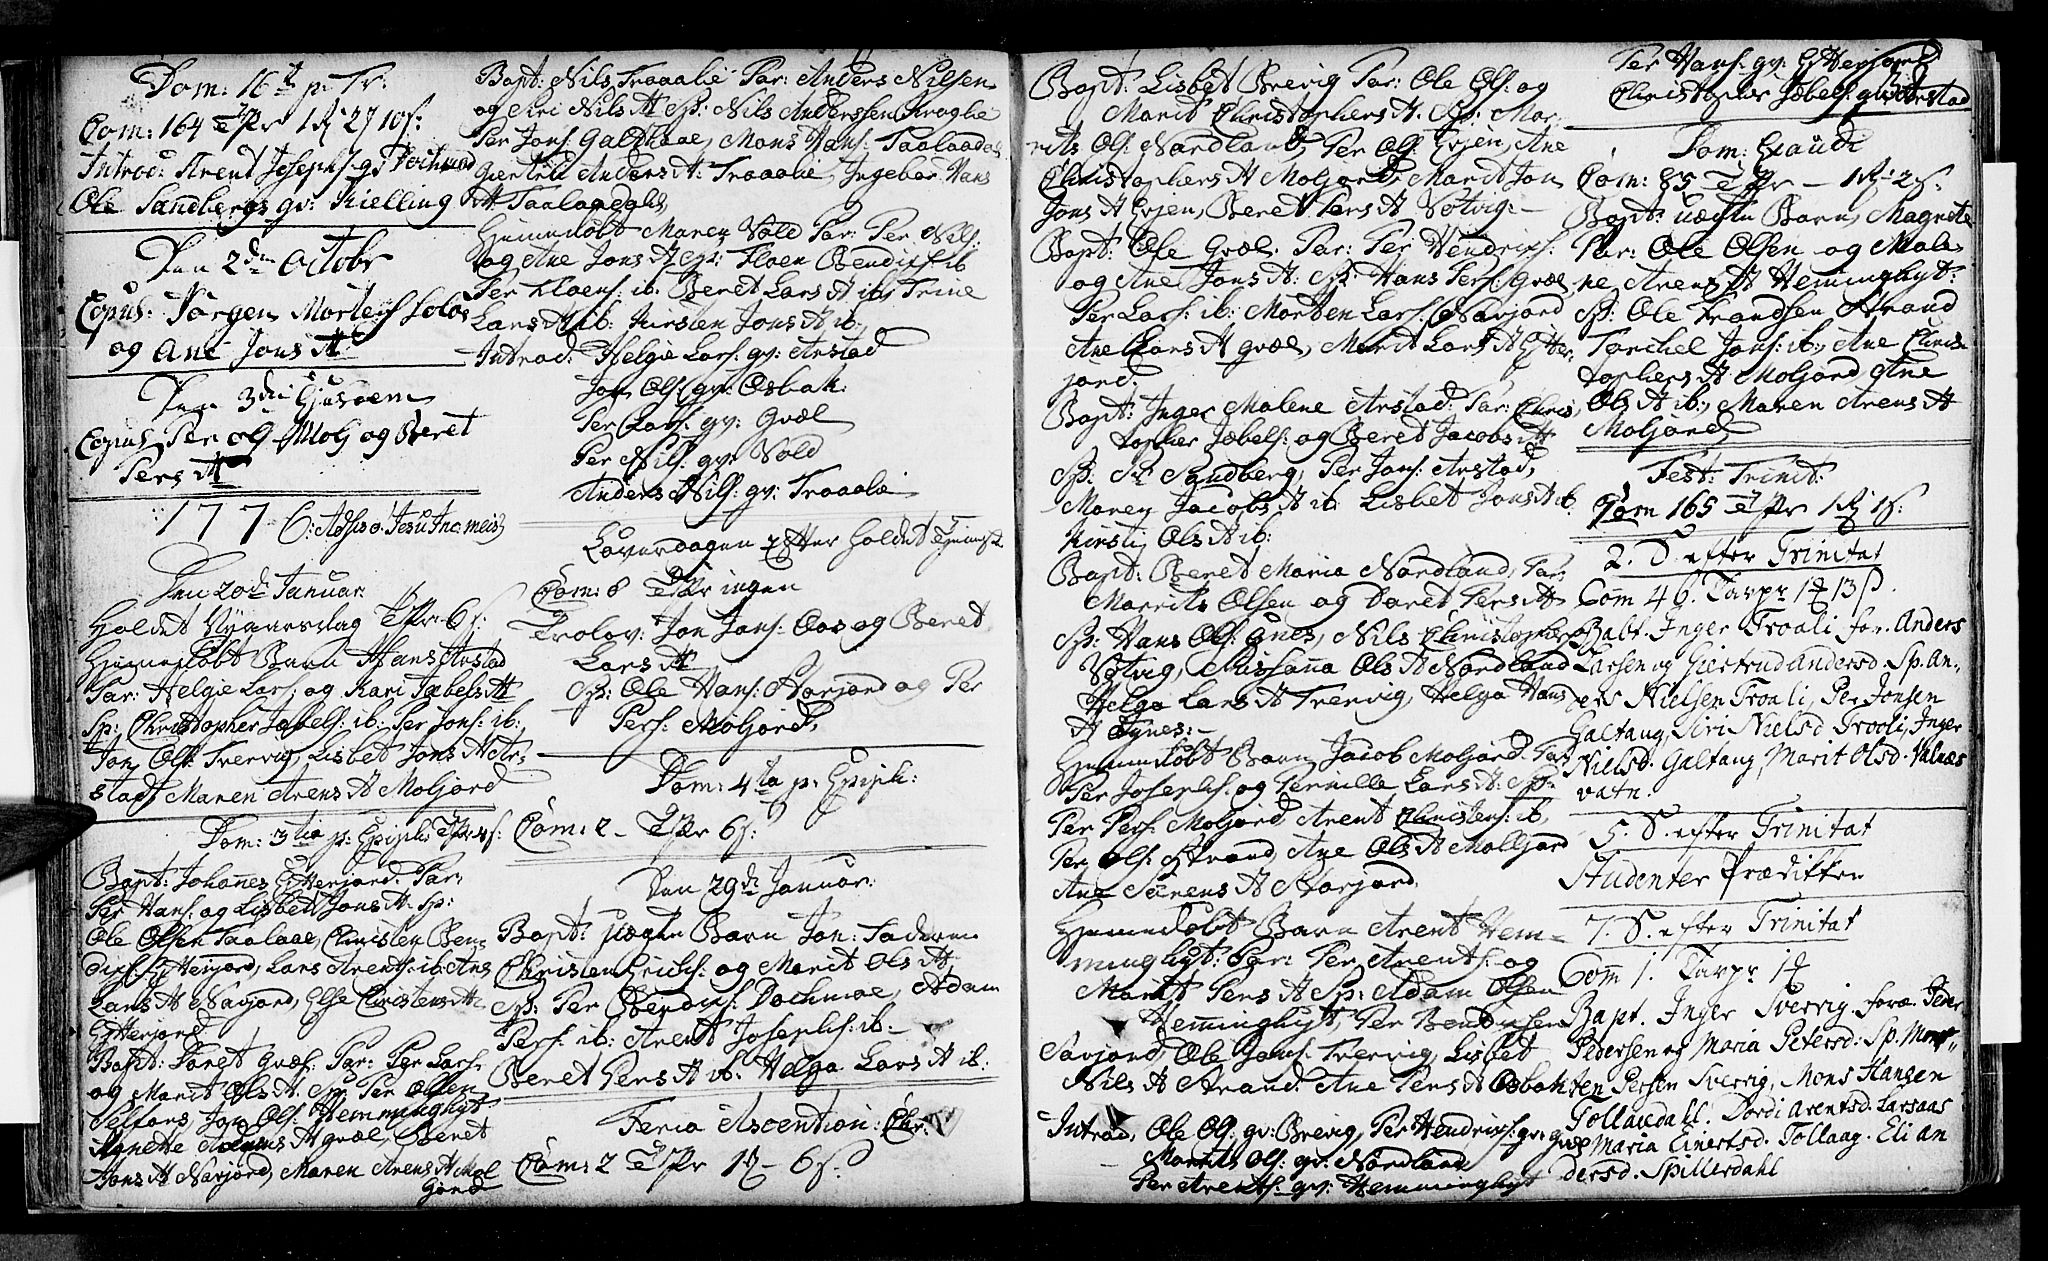 Dom: 16de p. Tr:
Com: 164 TPr 1 2 10 s:
Introd: Arent Josephs: gv:
Ole Sandbergs gv: Kielling
Den 2den Octobr
Copul: Jørgen Mortens:
og Ane Jons D
Den 3die Ejusdem
Copul Per Ols: Molj og Beret
Pers D
1776: Adsis o Jesu
Den 20de Januar:
Holdet Nyaarsdag TPr 6 s:
Hiemmedøbt Barn Hans Arstad
Par: Helgie Lars: og Kari Jæbels D
Sp: Christopher Jæbels: ib: Per Jons: ib:
Jon Ols: Trervig, Lisbet Jons D Ar-
stad, Maren Arens D Moljord
Dom: 3tia p: Epiph: TPr s:
Bapt: Johannes Etterjord. Par:
Per Hans: og Lisbet Jons D. Sp:
Ole Olsen Taalaae, Christen Ben-
dixs: Etterjord, Lars Arents: ib: Ane
Lars D Navjord, Else Christens D
Etterjord.
Bapt: Doret Gvæl: Par: Per Lars:
og Marit Ols D. Sp: Per Olsen
Jon Ols: Hemminghyt
Agnette D Gvæl, Beret
Jons D Navjord, Maren Arens D Mol
jord
Bapt: Nils Traaalie Par: Anders Nilsen
og Siri Nils D Sp: Nils Anderssen Traalie
Per Jons: Galthaae, Mons Hans: Taalaadal
Giertru Anders D: Traaalie, Ingebor Hans
D Taalaadahl
Hiemmdøbt Maren Vold Par: Per Nils:
og Ane Jons D Sp: Floen Bendixs: ib
Per Floens: ib: Beret Lars D ib, Trine
Lars D ib: Kirsten Jons D ib:
Introd: Helgie Lars: gv: Arstad
Jon Ols: gv: Osbak:
Per Lars: gv: Gvæl
Per Nils: gv: Vold
Anders Nils: gv: Traaalie
Løverdagen Efter holdet Tieniste
Com: 8 TPr ingen
Trolov: Jon Jons: Oos og Beret
Lars D
Sp: Ole Hans: Storjord og Per
Pers: Moljord,
Dom: 4ta p: Epiph:
Com: 2 - TPr 6 s:
Den 29de Januar:
Bapt: uægte Barn Jon: Faderen
Christen Erichs: og Marit Ols D,
Sp: Per Bendixs: Dochmoe, Adam
Pers: ib: Arent Josephs: ib:
Beret Pers D ib: Helga Lars D ib:
Feria Ascention: Chr:
Com: 2 TPr 1 - 6 s:
Bapt: Lisbet Brevig Par: Ole Ols: og
Marit Christophers D. Sp: Mor-
rits Ols: Nordland, Per Ols: Evjen, Ane
Christophers D Moljord, Marit Jon
Jons D Evjen, Beret Pers D Votvig:
Bapt: Ole Gvæl: Par: Per Hendrixs:
og Ane Jons D: Sp: Hans Pers: Gvæl,
Per Lars: ib: Morten Lars: Navjord
Ane Lars D Gvæl, Marit Lars D Etter-
jord.
Bapt: Inger Malene Arstad: Par: Chris-
topher Jæbels: og Beret Jacobs D
Sp: Sr Sandberg, Per Jons: Arstad,
Maren Jacobs D ib: Lisbet Jons D ib
Kirstj Ols D ib:
Bapt: Beret Maria Nordland, Par:
Morrits Olsen og Doret Pers D
Sp: Hans Ols: Gnes, Nils Christophers
Votvig, Massanna Ols D Nordland
Helga Lars D Trervig, Helga Hans
D Ognes:
Hiemmdøbt Barn Jacob Moljord. Par:
Per Josephs: og Pernille Lars D: Sp:
Per Pers: Moljord, Arent Christens: ib,
Per Ols: Strand, Ane Ols D Moljord
Ane Sørens D Storjord.
Hjemmdøbt Barn Arent Hem-
minghyt: Par: Per Arents: og
Marit Pers D Sp: Adam Olsen
Hemminghyt, Per Bendixsen
Navjord, Ole Jons: Trervig, Lisbet
Nils D Strand. Ane Pers D Osbak
Introd: Ole Ols: gv: Brevig, Per Hendrixs: gv: Gvæl
Morrits Ols: gv: Nordland
Per Arents: gv: Hemminghyt
Per Hans: gv: Etterjord
Christopher Jæbels: gv: Arstad
Dom: Exaudi
Com: 85 TPr - 1 2 s:
Bapt: uægte Barn, Magrete
Par: Ole Olsen og Male-
ne Arens D Hemminghyt:
Sp: Ole Frandsen Strand
Torchel Jons: ib:, Ane Chris-
tophers D Moljord Ane
Ols D ib:, Maren Arens D
Moljord
Fest: Trinit:
Com 165 TPr 1 1 s:
2. S. efter Trinitat
Com 46. Tavpr 1 13 s.
Babt. Inger Troali for. Anders
Larsen og Giertrud Andersd. Sp. An-
ders Nielsen Troali, Per Jonsen
Galtaag, Siri Nielsd Trooli, Inger
Nielsd. Galtaag, Marit Olsd. Valnæs
vatn.
5. S. efter Trinitat
Studenter Prædikken
7. S. efter Trinitat
Com 1. Tavpr 1
Bapt. Inger Sverrig. foræ. Peder
Pedersen og Maria Petersd: Sp. Mor-
ten Persen Sverrig, Mons Hansen
Tollaadahl. Dordi Arentsd. Larsaas
Maria Einersd. Tollaag. Eli An
dersd. Spillerdahl